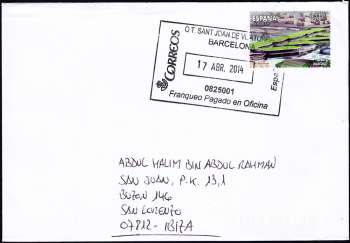 O.T. SANT JOAN DE VILATORRADA
BARCELONA
CORREOS
17 ABR. 2014
0825001
Franqueo Pagado en Oficina
España
ESPAÑA
CORREOS
ABDUL HALIM BIN ABDUL RAHMAN
SAN JUAN, P.K. 13,1
BUZON 146
SAN LORENZO
07812 - IBIZA